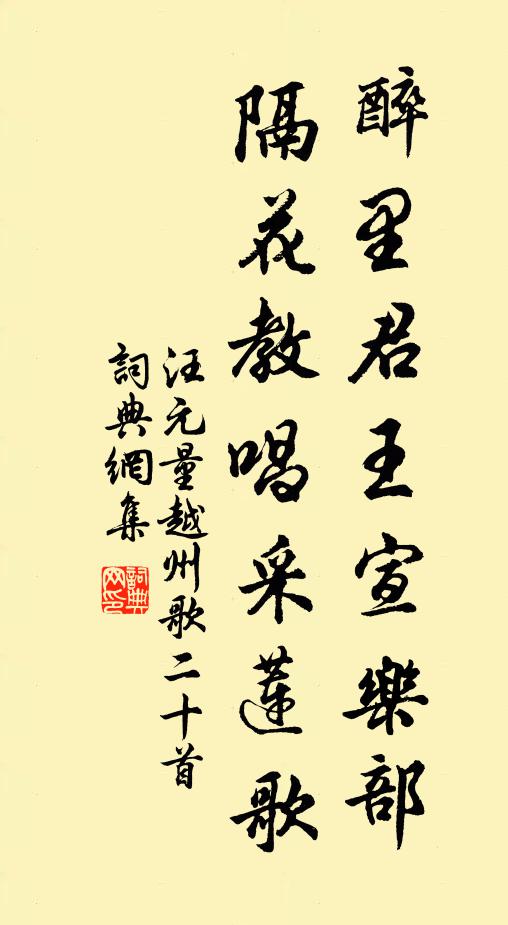 醉里君王宣樂部
隔花教唱采蓮歌
汪元量越州歌二十首
詞典網集
詞典网印